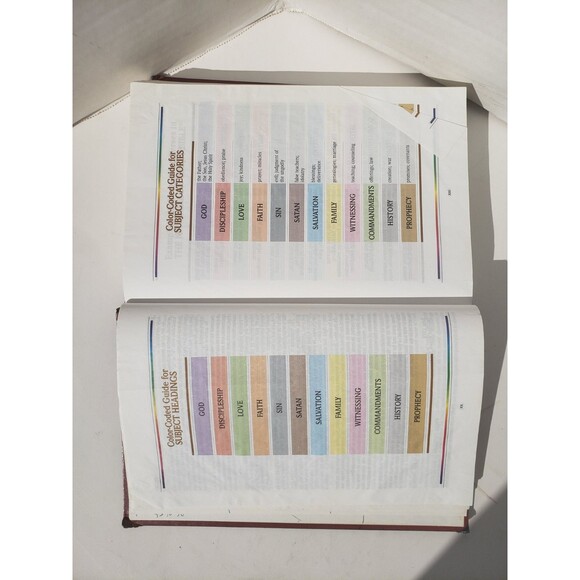 Color-Coded Guide for
SUBJECT HEADINGS
GOD
DISCIPLESHIP
LOVE
FAITH
SIN
SATAN
SALVATION
FAMILY
WITNESSING
COMMANDMENTS
HISTORY
PROPHECY
Color-Coded Guide for
SUBJECT CATEGORIES
GOD the Father;
the Son, Jesus Christ;
the Holy Spirit
DISCIPLESHIP obedience; praise
LOVE joy; kindness
FAITH prayer; miracles
SIN evil; judgment of
the ungodly
SATAN false teachers;
idolatry
SALVATION blessings;
deliverance
FAMILY genealogies; marriage
WITNESSING teaching; counseling
COMMANDMENTS offerings; law
HISTORY creation; war
PROPHECY promises; covenants